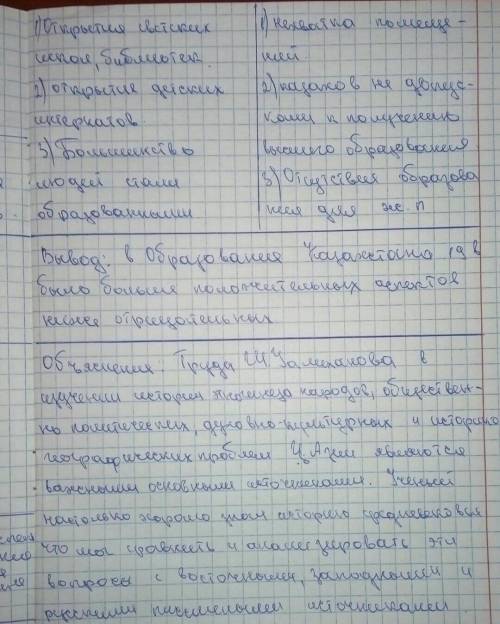 1) Открытия светских
школ, библиотек.
2) открытие детских
интернатов
3) Большинство
людей стали
образованными
1) нехватка помеще-
ний
2) казахов не допус-
кали к получению
высшего образования
3) Отсутствия образова
ния для ж. п
Вывод: в Образования Казахстана 19 в
было больше положительных аспектов
ниже отрицательных
Объяснения: Труда Ш. Уалиханова в
изучении истории народов, обществен-
но политических, духовно-культурных и историко
географических проблем Ц. Азии являются
важными основными источниками. Ученый
настолько хорошо знал историю средневековья
что мог сравнить и анализировать эти
вопросы с восточными, западными и
русскими письменными источниками.